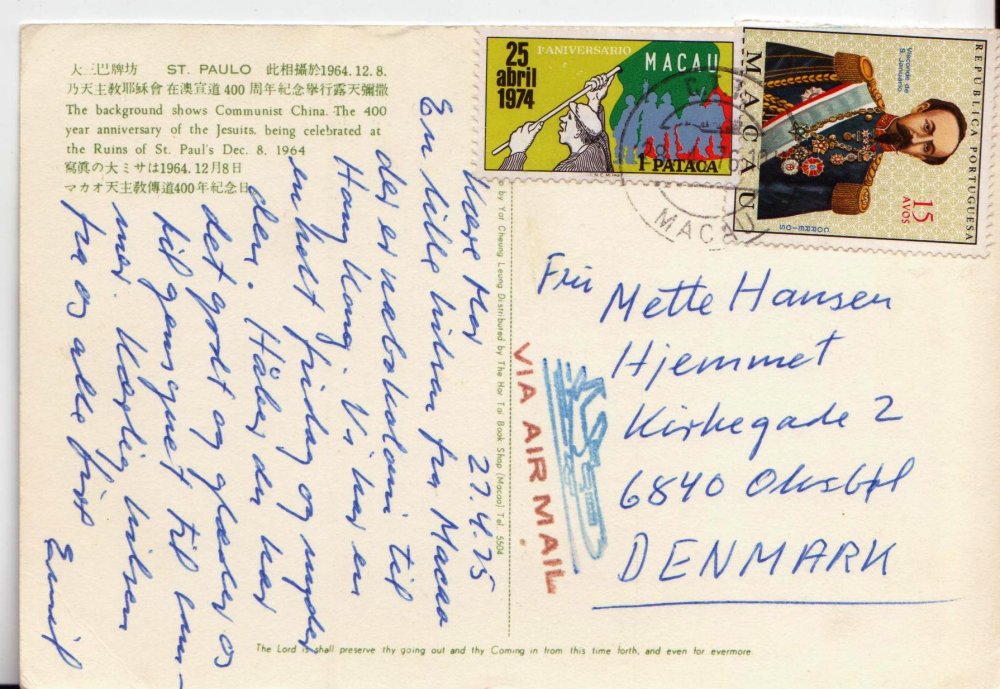 大三巴牌坊 ST. PAULO 此相攝於1964.12.8.
乃天主教耶穌會在澳宣道400周年紀念舉行露天彌撒
The background shows Communist China. The 400
year anniversary of the Jesuits, being celebrated at
the Ruins of St. Paul's Dec. 8, 1964
寫眞の大ミサは1964.12月8日
マカオ天主敎傳道400年紀念日
Kære Mor 27.4.75
En lille hilsen fra Macao
der er nabokoloni til
Hong Kong. Vi har en
enkelt fridag og nyder
den. Håber du har
det godt og glæder os
til gensynet til som-
mer. Kærlig hilsen
fra os alle fire
Emil
by Yat Cheung Leung Distributed by The Hor Tai Book Shop (Macao) Tel. 5504
25
abril
1974
1º ANIVERSÁRIO
MACAU
1 PATACA
REPÚBLICA PORTUGUESA
MACAU
Visconde de
S. Januário
15
AVOS
CORREIOS
MACAU
VIA AIR MAIL
Fru Mette Hansen
Hjemmet
Kirkegade 2
6840 Oksbøl
DENMARK
The Lord shall preserve thy going out and thy Coming in from this time forth, and even for evermore.